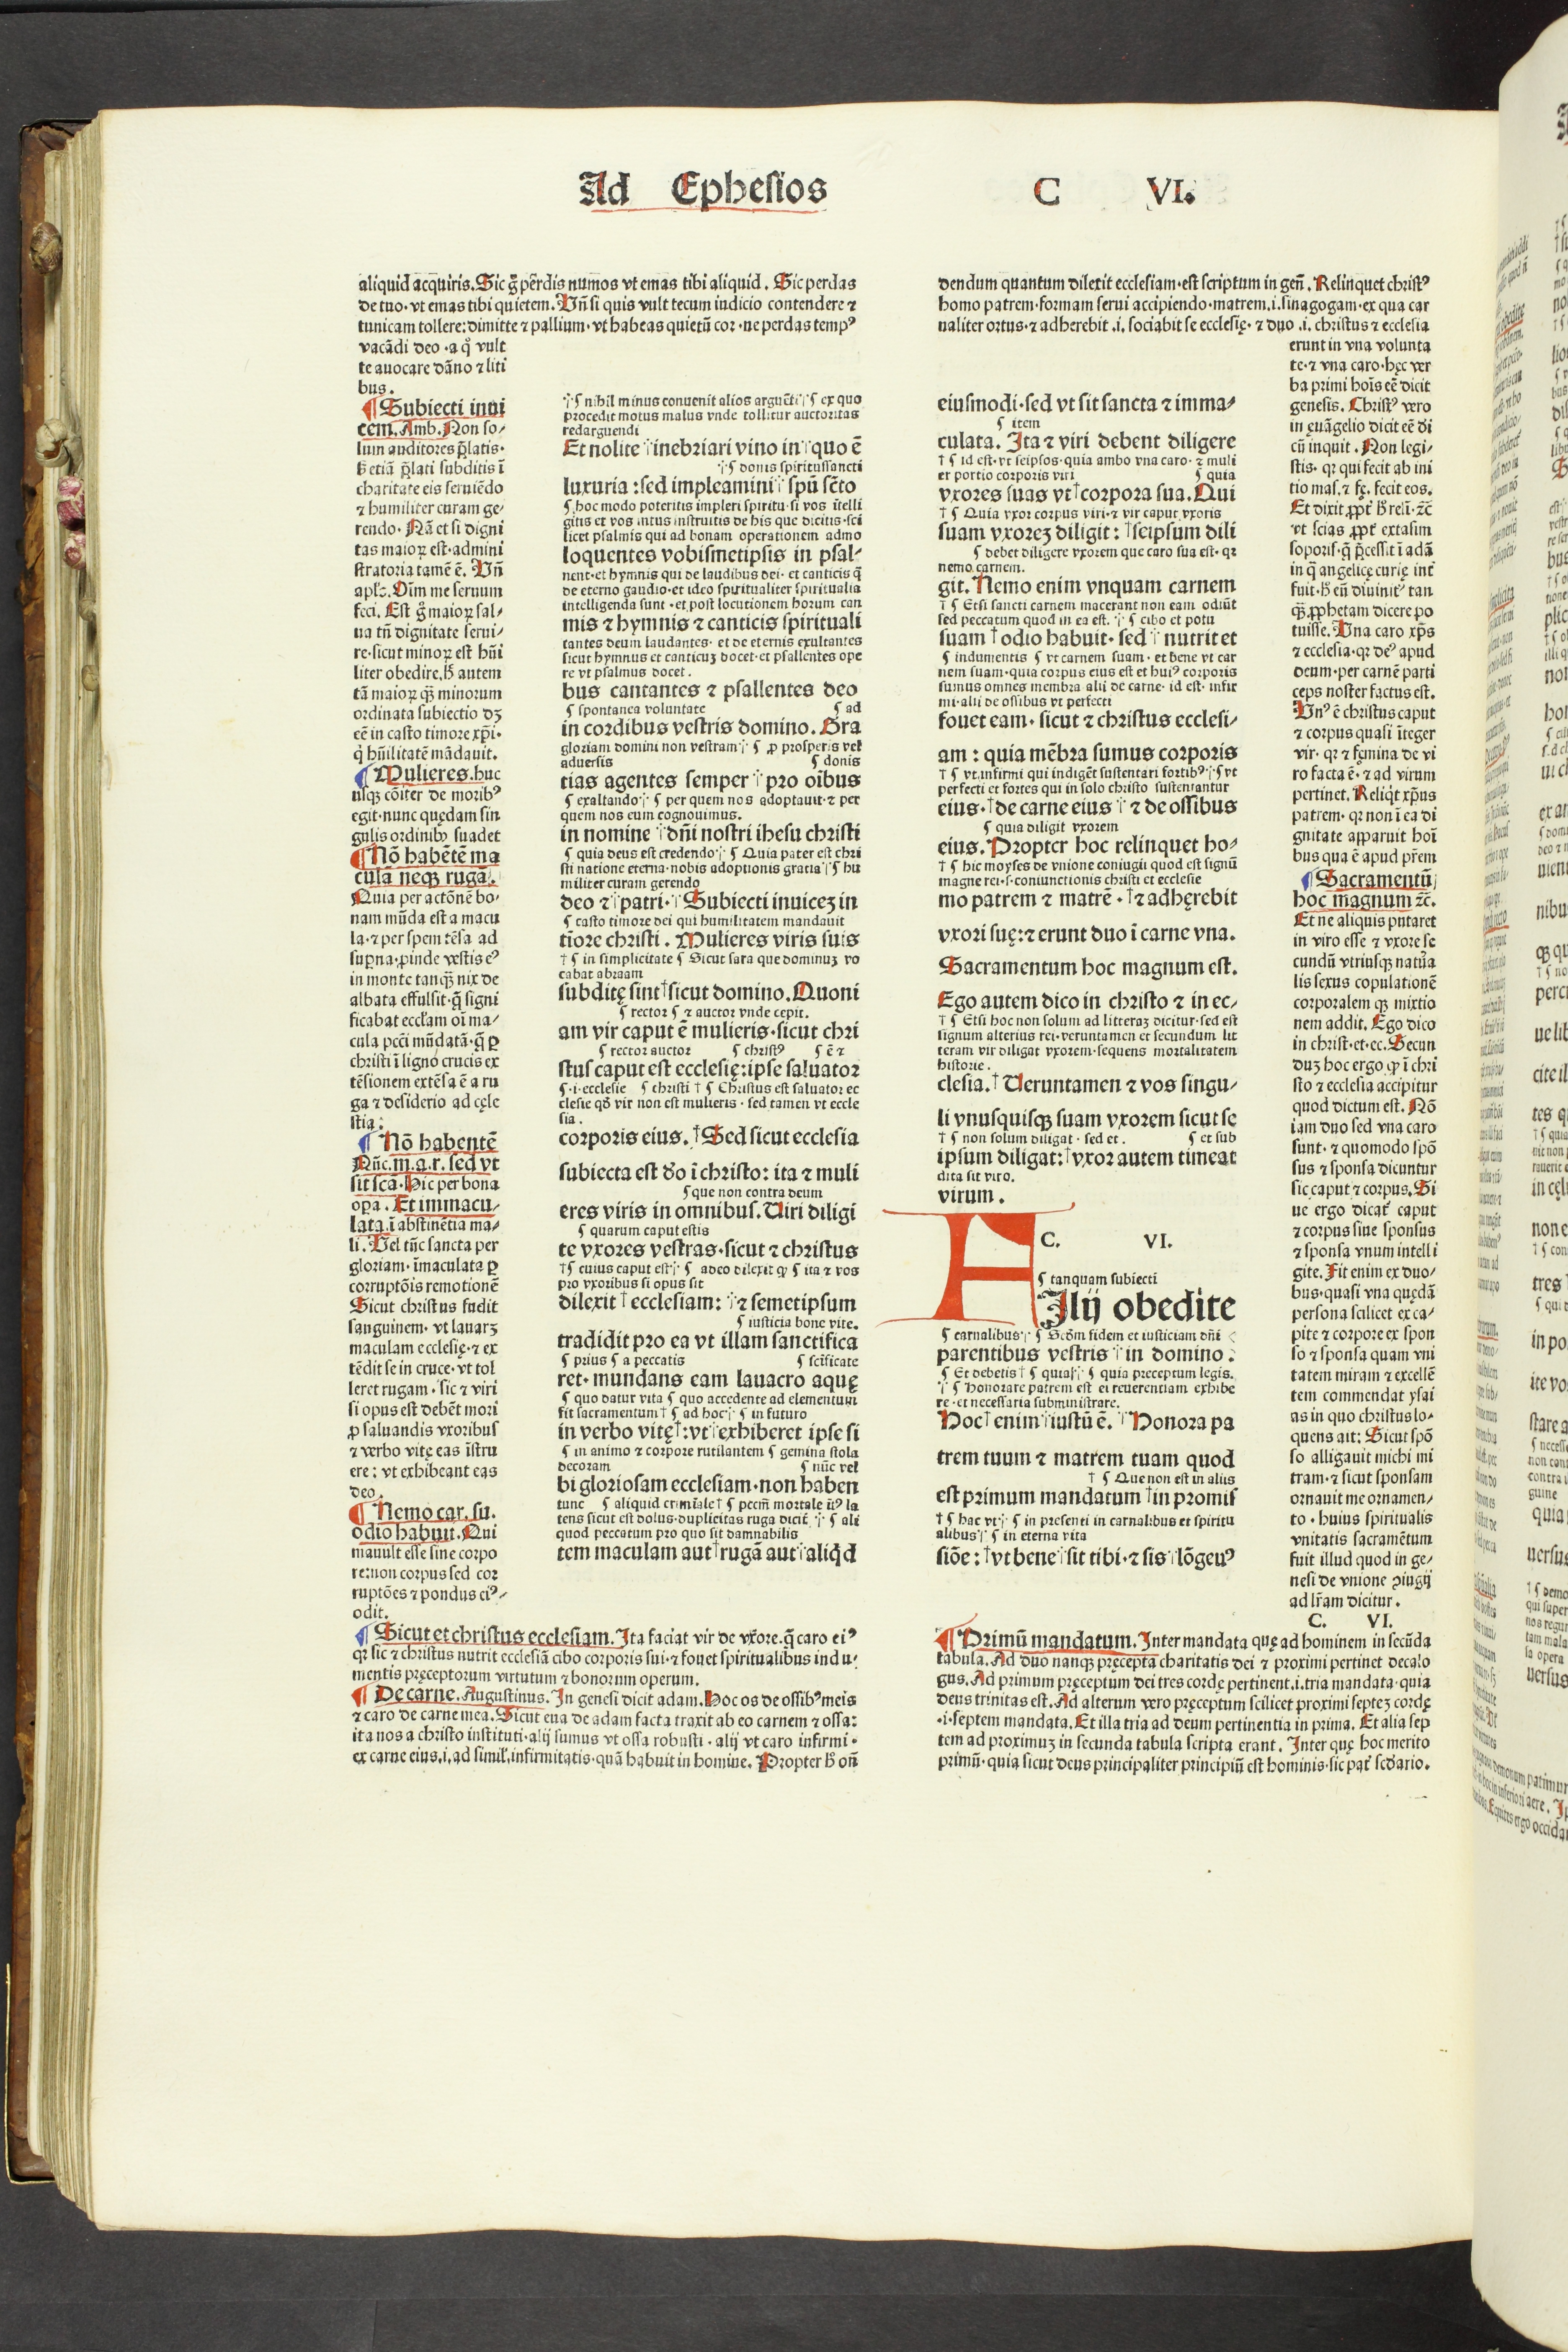 Ad Ephesios C VI.
aliquid acquiris. Sic gͦ perdis numos vt emas tibi aliquid. Sic perdas
de tuo·vt emas tibi quietem. Vn̄ si quis vult tecum iudicio contendere ⁊
tunicam tollere: dimitte ⁊ pallium·vt habeas quietū cor·ne perdas tempꝰ
vacādi deo·a qͦ vult
te auocare dāno ⁊ liti
bus.
¶ Subiecti inui
cem. Amb. Non so/
lum auditores p̄latis·
hͦ etiā p̄lati subditis ī
charitate eis seruiēdo
⁊ humiliter curam ge/
rendo. Nā et si digni
tas maioꝝ est·admini
stratoria tamē ē. Vn̄
apl's. Oīm me seruum
feci. Est gͦ maioꝝ sal/
ua tn̄ dignitate serui/
re·sicut minoꝝ est hūi
liter obedire. hͦ autem
tā maioꝝ qꝫ minorum
ordinata subiectio dꝫ
eē in casto timore xp̄i·
qͥ hūilitatē mādauit.
¶ Mulieres. huc
usqꝫ cōiter de moribꝰ
egit·nunc quędam sin
gulis ordinibꝫ suadet
¶ Nō habētē ma
cula neqꝫ rugā.
Quia per actōnē bo/
nam mūda est a macu
la·⁊ per spem tēsa ad
supna·ꝓinde vestis eꝰ
in monte tanqꝫ nix de
albata effulsit·q̄ signi
ficabat eccl'am oī ma/
cula pcc̄i mūdatā·q̄ ꝑ
christi ī ligno crucis ex
tēsionem extēsa ē a ru
ga ⁊ desiderio ad cęle
stia:
¶ Nō habentē
Nūc. m.a.r. sed vt
sit sc̄a. Hic per bona
opa. Et immacu/
lata. ī abstinētia ma/
li. Vel tūc sancta per
gloriam·īmaculata ꝑ
corruptōis remotionē
Sicut christus fudit
sanguinem·vt lauaꝫ
maculam ecclesię·⁊ ex
tēdit se in cruce·vt tol
leret rugam·sic ⁊ viri
si opus est debēt mori
ꝓ saluandis vxoribus
⁊ verbo vitę eas īstru
ere: vt exhibeant eas
deo.
¶ Nemo car. su.
odio habuit. Qui
mauult esse sine corpo
re:non corpus sed cor
ruptōes ⁊ pondus eiꝰ/
odit.
¶ Sicut et christus ecclesiam. Ita faciat vir de vxore·q̄ caro eiꝰ
qꝛ sic ⁊ christus nutrit ecclesiā cibo corporis sui·⁊ fouet spiritualibus indu/
mentis pręceptorum virtutum ⁊ bonorum operum.
¶ De carne. Augustinus. In genesi dicit adam. Hoc os de ossibꝰ meis
⁊ caro de carne mea. Sicut eua de adam facta traxit ab eo carnem ⁊ ossa:
ita nos a christo instituti·alij sumus vt ossa robusti·alij vt caro infirmi·
ex carne eius.i.ad simil'.infirmitatis·quā habuit in homine. Propter hͦ on̄
⸓¶ nihil minus conuenit alios arguēti⸓¶ ex quo
procedit motus malus vnde tollitur auctoritas
redarguendi
Et nolite ⸓inebriari vino in⸓quo ē
⸓¶ donis spiritussancti
luxuria: sed impleamini⸓ spū sc̄to
¶ hoc modo poteritis impleri spiritu·si vos ītelli
gitis et vos intus instruitis de his que dicitis·sci
licet psalmis qui ad bonam operationem admo
loquentes vobismetipsis in psal/
nent·et hymnis qui de laudibus dei·et canticis q̄
de eterno gaudio·et ideo spiritualiter spiritualia
intelligenda sunt·et post locutionem horum can
mis ⁊ hymnis ⁊ canticis spirituali
tantes deum laudantes·et de eternis exultantes
sicut hymnus et canticuꝫ docet·et psallentes ope
re vt psalmus docet.
bus cantantes ⁊ psallentes deo
¶ spontanea voluntate ¶ ad
in cordibus vestris domino. Gra
gloriam domini non vestram⸓ ¶ ꝓ prosperis vel
aduersis ¶ donis
tias agentes semper⸓pro oībus
¶ exaltando⸓¶ per quem nos adoptauit·⁊ per
quem nos eum cognouimus.
in nomine ⸓dn̄i nostri ihesu christi
¶ quia deus est credendo⸓¶ Quia pater est chri
sti natione eterna·nobis adoptionis gratia⸓¶ hu
militer curam gerendo
deo ⁊⸓patri.⸓Subiecti inuiceꝫ in
¶ casto timore dei qui humilitatem mandauit
tīore christi. Mulieres viris suis
†¶ in simplicitate ¶ Sicut sara que dominuꝫ vo
cabat abraam
subditę sint†sicut domino. Quoni
¶ rector ¶ ⁊ auctor vnde cepit.
am vir caput ē mulieris·sicut chri
¶ rector auctor ¶ christꝰ ¶ ē ⁊
stus caput est ecclesię:ipse saluator
¶·i·ecclesie ¶ christi †¶ Christus est saluator ec
clesie qd̓ vir non est mulieris·sed tamen vt eccle
sia.
corporis eius.†Sed sicut ecclesia
subiecta est do ī christo: ita ⁊ muli
¶que non contra deum
eres viris in omnibus. Uiri diligi
¶ quarum caput estis
te vxores vestras·sicut ⁊ christus
†¶ cuius caput est⸓¶ adeo dilexit qꝫ ¶ ita ⁊ vos
pro vxoribus si opus sit
dilexit†ecclesiam:⸓⁊ semetipsum
¶ iusticia bone vite.
tradidit pro ea vt illam sanctifica
¶ prius ¶ a peccatis ¶ sc̄ificate
ret·mundans eam lauacro aquę
¶ quo datur vita ¶ quo accedente ad elementum
fit sacramentum†¶ ad hoc⸓¶ in futuro
in verbo vitę†:vt⸓exhiberet ipse si
¶ in animo ⁊ corpore rutilantem ¶ gemina stola
decoram ¶ nūc vel
bi gloriosam ecclesiam·non haben
tunc ¶ aliquid crimīale†¶ pccm̄ mortale īꝰ la
tens sicut est dolus·duplicitas ruga dicit⸓¶ ali
quod peccatum pro quo sit damnabilis
tem maculam aut†rugā aut⸓aliqd̓
dendum quantum dilexit ecclesiam·est scriptum in gen̄. Relinquet christꝰ
homo patrem·formam serui accipiendo·matrem.i.sinagogam·ex qua car
naliter ortus·⁊ adherebit.i.sociabit se ecclesię·⁊ duo.i.christus ⁊ ecclesia
eiusmodi·sed vt sit sancta ⁊ imma/
¶ item
culata. Ita ⁊ viri debent diligere
†¶ id est·vt seipsos·quia ambo vna caro·⁊ muli
er portio corporis viri ¶ quia
vxores suas vt†corpora sua. Qui
†¶ Quia vxor corpus viri·⁊ vir caput vxoris
suam vxoreꝫ diligit:†seipsum dili
¶ debet diligere vxorem que caro sua est·qꝛ
nemo carnem.
git. Nemo enim vnquam carnem
†¶ Etsi sancti carnem macerant non eam odiūt
sed peccatum quod in ea est.⸓¶ cibo et potu
suam†odio habuit·sed⸓nutrit et
¶ indumentis ¶ vt carnem suam·et bene vt car
nem suam·quia corpus eius est et huiꝰ corporis
sumus omnes membra alii de carne·id est·infir
mi·alii de ossibus vt perfecti
fouet eam·sicut ⁊ christus ecclesi/
am: quia mēbra sumus corporis
†¶ vt infirmi qui indigēt sustentari fortibꝰ⸓¶ vt
perfecti et fortes qui in solo christo sustentantur
eius.†de carne eius⸓⁊ de ossibus
¶ quia diligit vxorem
eius. Propter hoc relinquet ho/
†¶ hic moyses de vnione coniugii quod est signū
magne rei·s·coniunctionis christi et ecclesie
mo patrem ⁊ matrē.†⁊ adhęrebit
vxori suę:⁊ erunt duo ī carne vna.
Sacramentum hoc magnum est.
Ego autem dico in christo ⁊ in ec/
†¶ Etsi hoc non solum ad litteraꝫ dicitur·sed est
signum alterius rei·veruntamen et secundum lit
teram vir diligat vxorem·sequens mortalitatem
historie.
clesia.†Ueruntamen ⁊ vos singu/
li vnusquisqꝫ suam vxorem sicut se
†¶ non solum diligat·sed et. ¶ et sub
ipsum diligat:†vxor autem timeat
dita sit viro.
virum.
C. VI.
¶ tanquam subiecti
FIlij obedite
¶ carnalibus⸓¶ Scd̓m fidem et iusticiam dn̄i
parentibus vestris⸓in domino:
¶ Et debetis†¶ quia⸓¶ quia preceptum legis.
⸓¶ Honorare patrem est ei reuerentiam exhibe
re·et necessaria subministrare.
Hoc†enim⸓iustū ē.⸓Honora pa
trem tuum ⁊ matrem tuam quod
†¶ Que non est in aliis
est primum mandatum†in promis
†¶ hac vt⸓¶ in presenti in carnalibus et spiritu
alibus⸓¶ in eterna vita
siōe:†vt bene⸓sit tibi·⁊ sis⸓lōgeuꝰ
erunt in vna volunta
te·⁊ vna caro·hęc ver
ba primi hoīs eē dicit
genesis. Christꝰ vero
in euāgelio dicit eē di
cū inquit. Non legi/
stis·qꝛ qui fecit ab ini
tio mas.⁊ fę. fecit eos.
Et dixit ꝓpt' hͦ reli.⁊c̄
vt scias ꝓpt' extasim
soporis·q̄ p̄cessit ī adā
in q̄ angelicę curię int'
fuit·hͦ eū diuinitꝰ tan
qꝫ ꝓphetam dicere po
tuisse. Una caro xp̄s
⁊ ecclesia·qꝛ deꝰ apud
deum·per carnē parti
ceps noster factus est.
Vnꝰ ē christus caput
⁊ corpus quasi īteger
vir·qꝛ ⁊ fęmina de vi
ro facta ē·⁊ ad virum
pertinet. Reliqt xp̄us
patrem·qꝛ non ī ea di
gnitate apparuit hoī
bus qua ē apud prēm
¶ Sacramentū
hoc magnum ⁊c̄.
Et ne aliquis putaret
in viro esse ⁊ vxore se
cundū vtriusqꝫ natura
lis sexus copulationē
corporalem qꝫ mixtio
nem addit. Ego dico
in christ·et·ec. Secun
duꝫ hoc ergo qꝫ ī chri
sto ⁊ ecclesia accipitur
quod dictum est. Nō
iam duo sed vna caro
sunt·⁊ quomodo spō
sus ⁊ sponsa dicuntur
sic caput ⁊ corpus. Si
ue ergo dicat' caput
⁊ corpus siue sponsus
⁊ sponsa vnum intelli
gite. Fit enim ex duo/
bus·quasi vna quędā
persona scilicet ex ca/
pite ⁊ corpore ex spon
so ⁊ sponsa quam vni
tatem miram ⁊ excellē
tem commendat ysai
as in quo christus lo/
quens ait: Sicut spō
so alligauit michi mi
tram·⁊ sicut sponsam
ornauit me ornamen/
to·huius spiritualis
vnitatis sacramētum
fuit illud quod in ge/
nesi de vnione ꝯiugij
ad lr̄am dicitur.
C. VI.
¶ Primū mandatum. Inter mandata quę ad hominem in secūda
tabula. Ad duo nanqꝫ pręcepta charitatis dei ⁊ proximi pertinet decalo
gus. Ad primum pręceptum dei tres cordę pertinent.i.tria mandata·quia
deus trinitas est. Ad alterum vero pręceptum scilicet proximi septeꝫ cordę
·i·septem mandata. Et illa tria ad deum pertinentia in prima. Et alia sep
tem ad proximuꝫ in secunda tabula scripta erant. Inter quę hoc merito
primū·quia sicut deus principaliter principiū est hominis·sic pat' scd̓ario.